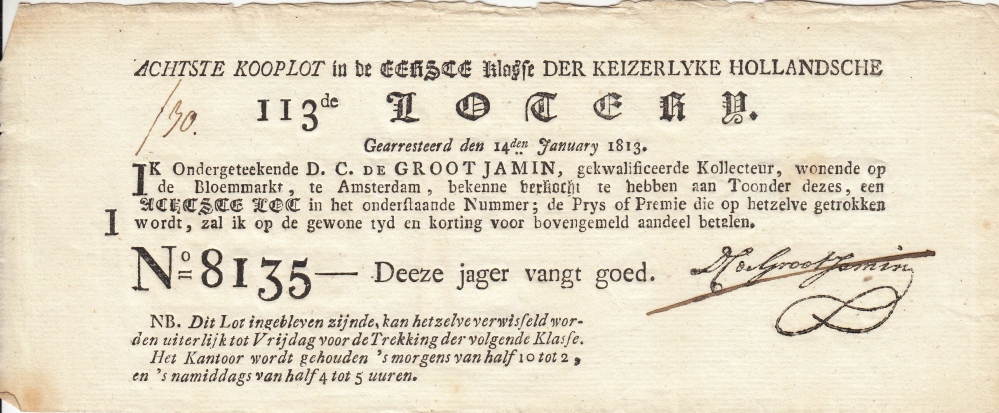 ACHTSTE KOOPLOT in de EERSTE Klasse DER KEIZERLYKE HOLLANDSCHE
113de LOTERY.
130.
Gearresteerd den 14den January 1813.
IK Ondergeteekende D. C. DE GROOT JAMIN, gekwalificeerde Kollecteur, wonende op
de Bloemmarkt, te Amsterdam, bekenne verkocht te hebben aan Toonder dezes, een
ACHTSTE LOT in het onderstaande Nummer; de Prys of Premie die op hetzelve getrokken
1 wordt, zal ik op de gewone tyd en korting voor bovengemeld aandeel betalen.
No. 8135 — Deeze jager vangt goed.
DC de Groot Jamin
NB. Dit Lot ingebleven zijnde, kan hetzelve verwisfeld wor-
den uiterlijk tot Vrijdag voor de Trekking der volgende Klasse.
Het Kantoor wordt gehouden 's morgens van half 10 tot 2,
en 's namiddags van half 4 tot 5 uuren.